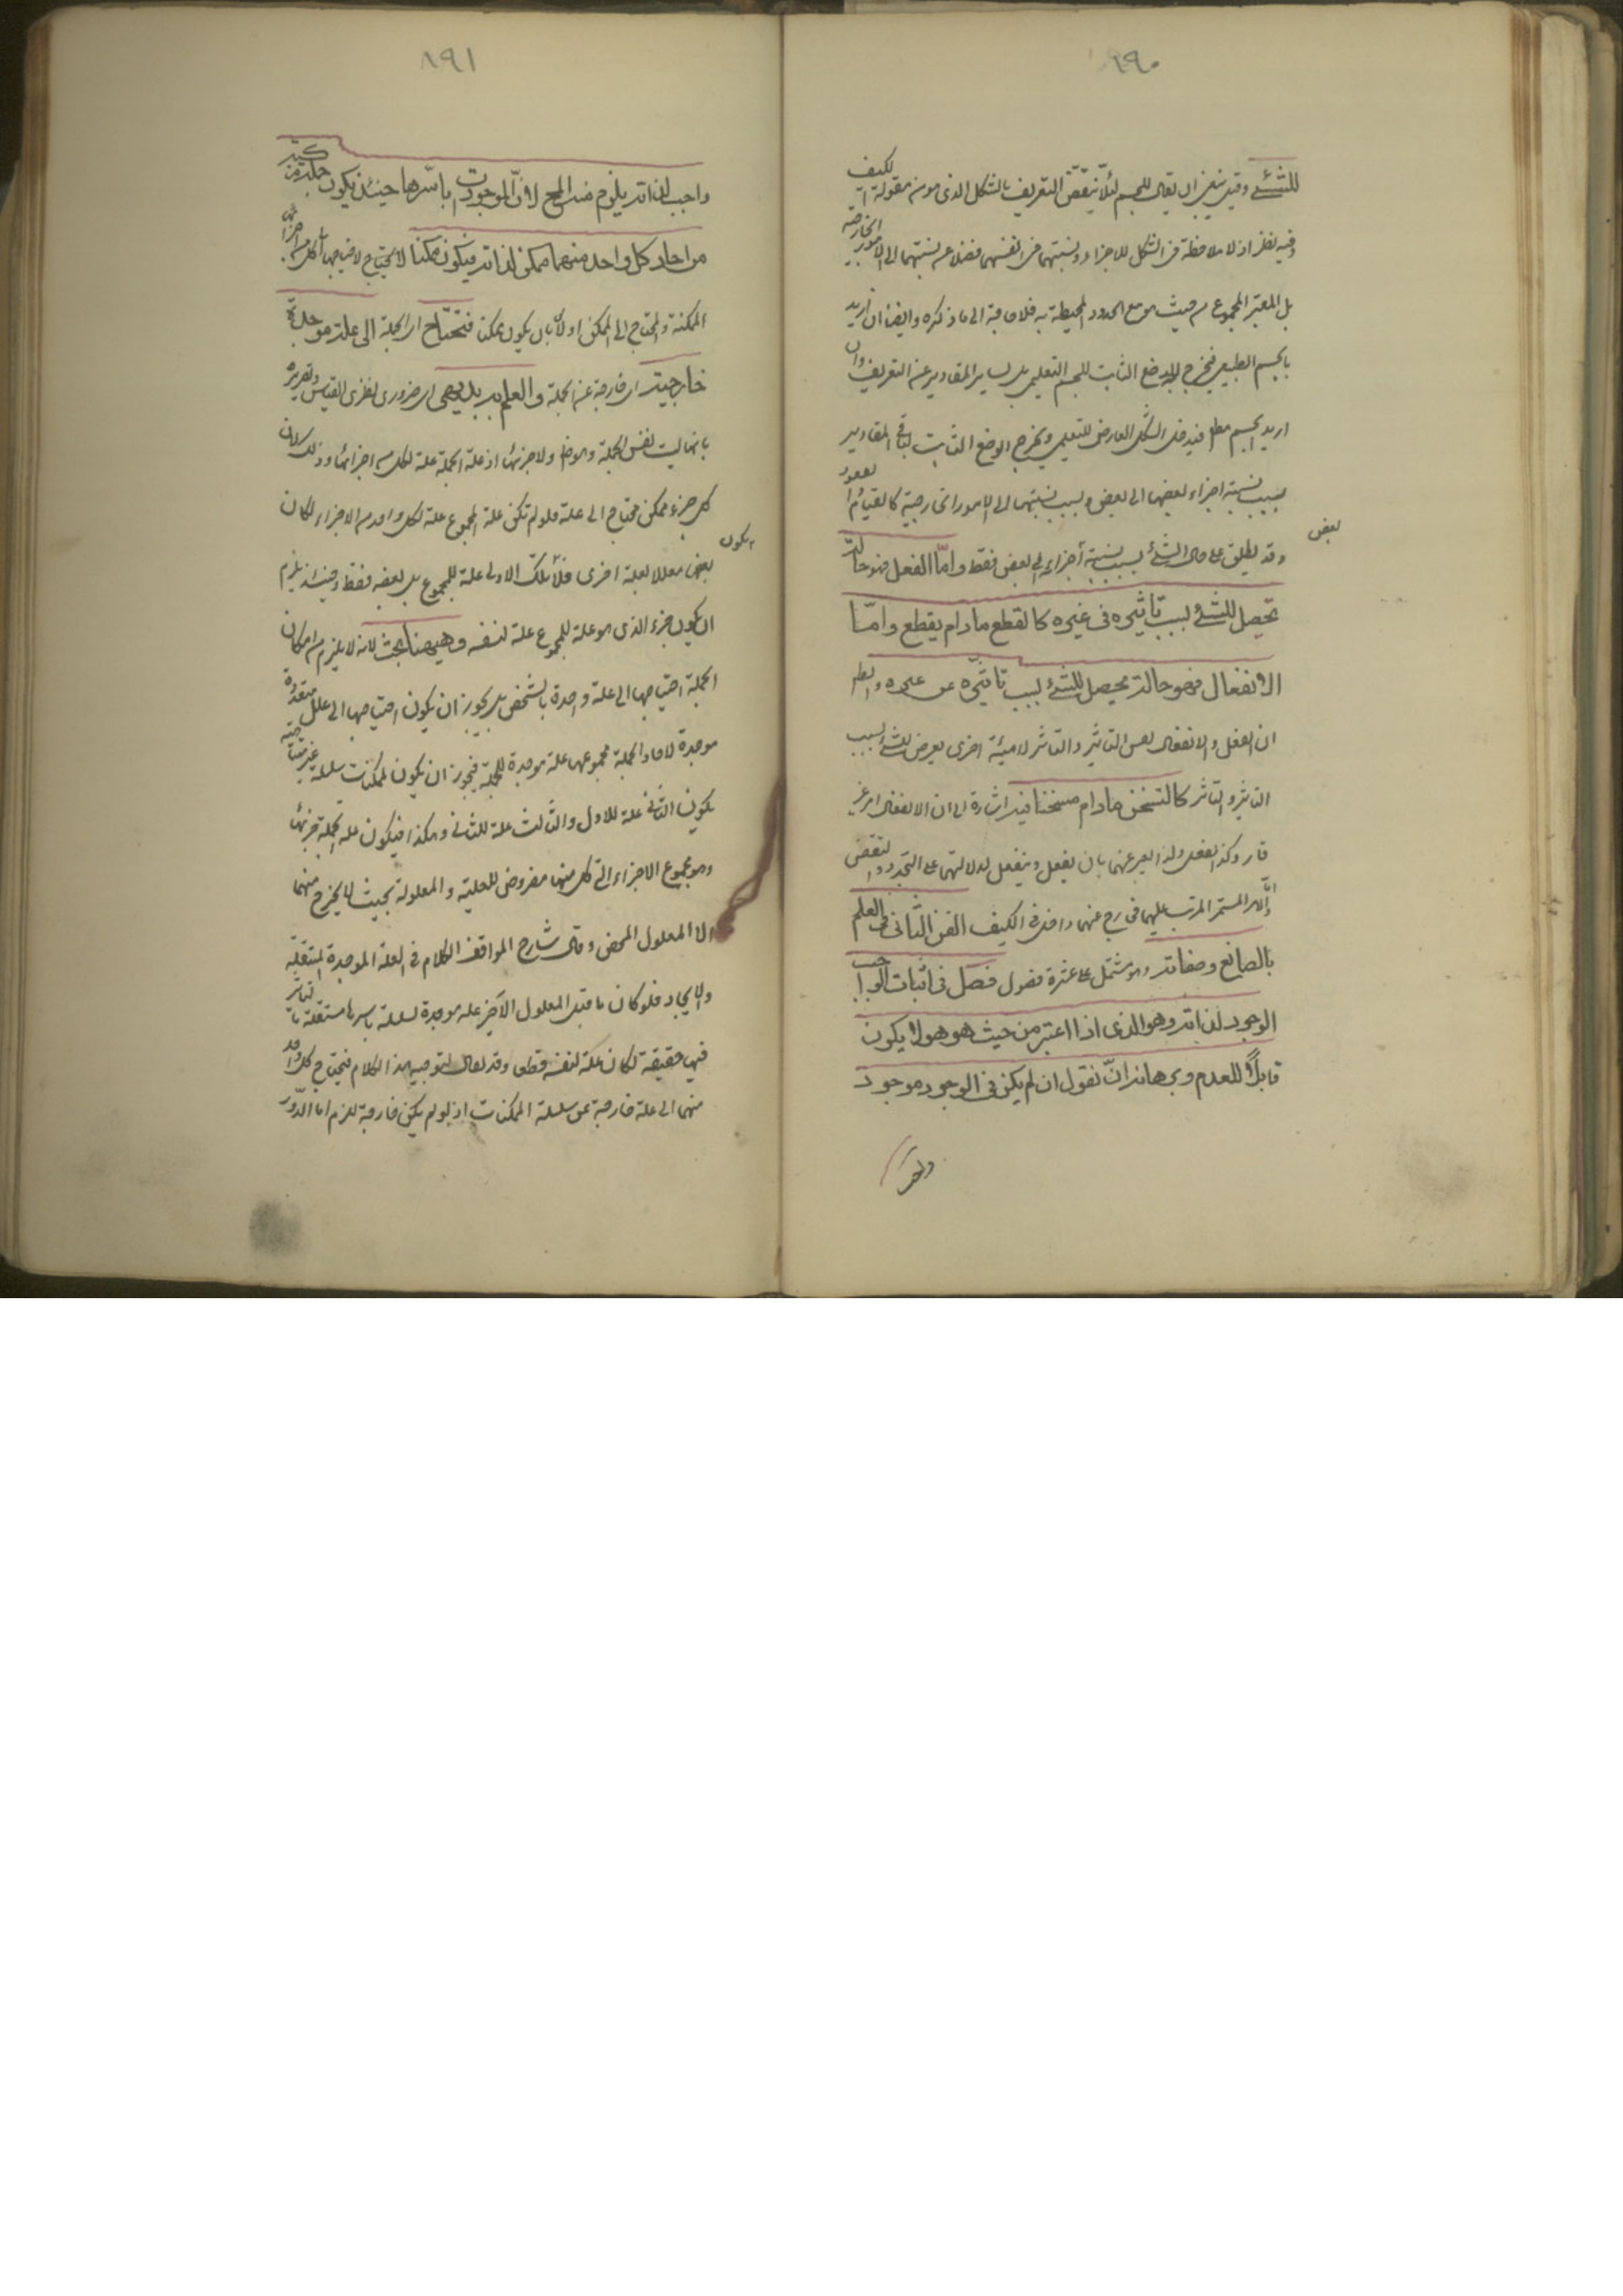 ١٩٠
للشئ وقيل ينبغى ان يقال للجسم لئلا ينتقض التعريف بالشكل الذى هو من مقولة الكيف
وفيه نظر اذ لا ملاحظة فى الشكل للاجزاء ونسبتها فى انفسها فضلا عن نسبتها الى الامور الخارجية
بل المعتبر المجموع من حيث هو مع الحدود المحيطة به فلا حاجة الى ما ذكره وايضا ان اريد
بالجسم الطبيعى فيخرج الوضع الثابت للجسم التعليمى بل لساير المقادير عن التعريف وان
اريد الجسم مطلقا فيدخل الشكل العارض للتعليمى ويخرج الوضع الثابت لباقى المقادير
بسبب نسبة اجزاء بعضها الى بعض وبسبب نسبتها الى الامور الخارجية كالقيام والقعود
وقد يطلق على حال الشئ بسبب نسبة أجزائه الى بعض فقط وامّا الفعل فهو حالة
بعض
تحصل للشئ بسبب تاثيره فى غيره كالقطع مادام يقطع وامّا
الانفعال فهو حالة تحصل للشئ بسبب تاثّره عن غيره
ان الفعل والانفعال نفس التاثير والتاثر لا هيئة اخرى يعرض للشئ بسبب
التاثير والتاثر كالتسخن مادام متسخنا فيه اشارة الى ان الانفعال امر غير
قار وكذا الفعل ولذا يعبر عنهما بان يفعل وينفعل لدلالتهما على التجدد والتقضى
وامّا الامر المستمر المرتب عليهما فخارج عنهما داخل فى الكيف الفن الثانى فى العلم
بالصانع وصفاته وهو مشتمل على عشرة فصول فصل فى اثبات الواجب
الوجود لذاته وهو الذى اذا اعتبر من حيث هو هو لا يكون
قابلاً للعدم وبرهانه انّ نقول ان لم يكن فى الوجود موجود
١٩١
واجب لذاته يلزم منه المح لانّ الموجودات باسّرها حينئذ يكون جملة مركبة
من احاد كل واحد منهما ممكن لذاته فيكون ممكنا لاحتياجها الى كل من اجزائها
الممكنة والمحتاج الى الممكن اولى بان يكون ممكنا فتحتاج اى الجملة الى علة موجدة
خارجية اى خارجة عن الجملة والعلم به بديهى اى ضرورى فطرى القياس وتقريره
بانها ليست نفس الجملة ولا جزئها اذ علة الجملة علة لكل من اجزائها وذلك لان
كل جزء ممكن محتاج الى علة فلو لم تكن علة المجموع علة لكل واحد من الاجزاء لكان
بعضها معللا لعلة اخرى فلا تلك الاولى علة للمجموع بل لبعضه فقط وحينئذ يلزم
يكون
ان يكون جزء الذى هو علة للمجموع علة لنفسه وهيهنا بحث لانه لا يلزم من امكان
الجملة احتياجها الى علة واحدة بالشخص بل يجوز ان يكون احتياجها الى علل متعددة
موجدة لاحاد الجملة مجموعها علة موجدة للجملة فيجوز ان يكون الممكنات سلسلة غير متناهية
يكون الثانى علة للاول والثالث علة للثانى وهكذا فيكون علة الجملة جزئها
وهو مجموع الاجزاء التى كل منها مفروض للعلية والمعلولة بحيث لا يخرج منها
الا المعلول المحض وقال شارح المواقف الكلام فى العلة الموجدة المستقلة
والايجاد فلو كان ما قبل المعلول الاخير علة موجدة لسلسلة باسرها مستقلة بالتاثير
فيها حقيقة لكان علة لنفسه قطعا وقد يقال لتوجيه هذا الكلام فيحتاج كل واحد
منهما الى علة خارجة عن سلسلة الممكنات اذ لو لم يكن خارجة لزم اما الدّور